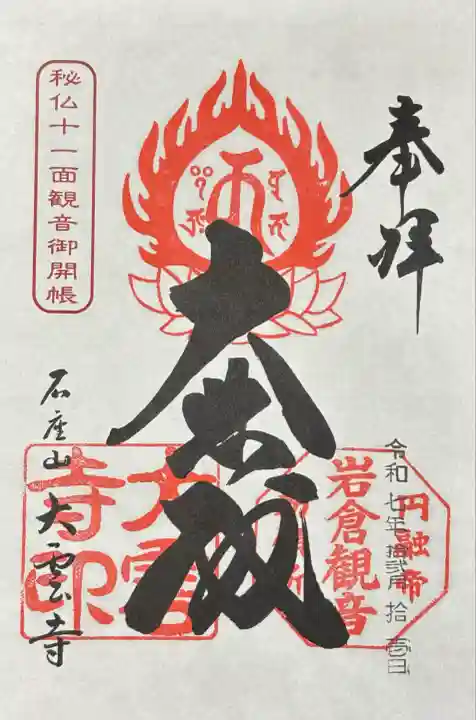 奉拝
令和七年拾弐月拾壱日
円融帝
岩倉観音
大悲殿
大雲
寺印
石座山大雲寺
秘仏十一面観音御開帳